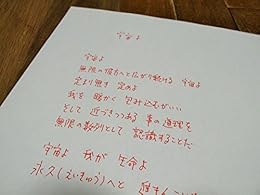 宇宙よ
宇宙よ
無限の彼方へと広がり続ける 宇宙よ
定より無き 定めよ
我を 暗かく 包み込むがいい
そして 近づきつつある 事の道理を
無限の数列として 認識することだ
宇宙よ 我が 生命よ
永久(えいきゅう)へと